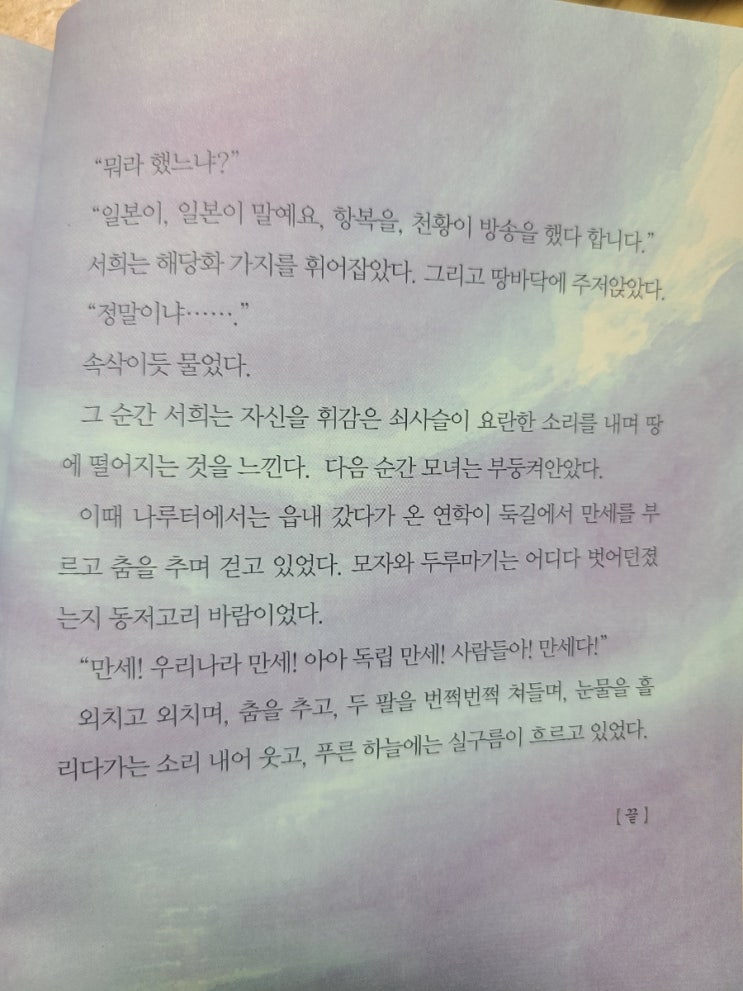 “뭐라 했느냐?”
“일본이, 일본이 말예요, 항복을, 천황이 방송을 했다 합니다.”
서희는 해당화 가지를 휘어잡았다. 그리고 땅바닥에 주저앉았다.
“정말이냐…….”
속삭이듯 물었다.
그 순간 서희는 자신을 휘감은 쇠사슬이 요란한 소리를 내며 땅
에 떨어지는 것을 느낀다. 다음 순간 모녀는 부둥켜안았다.
이때 나루터에서는 읍내 갔다가 온 연학이 둑길에서 만세를 부
르고 춤을 추며 걷고 있었다. 모자와 두루마기는 어디다 벗어던졌
는지 동저고리 바람이었다.
“만세! 우리나라 만세! 아아 독립 만세! 사람들아! 만세다!”
외치고 외치며, 춤을 추고, 두 팔을 번쩍번쩍 쳐들며, 눈물을 흘
리다가는 소리 내어 웃고, 푸른 하늘에는 실구름이 흐르고 있었다.
[끝]